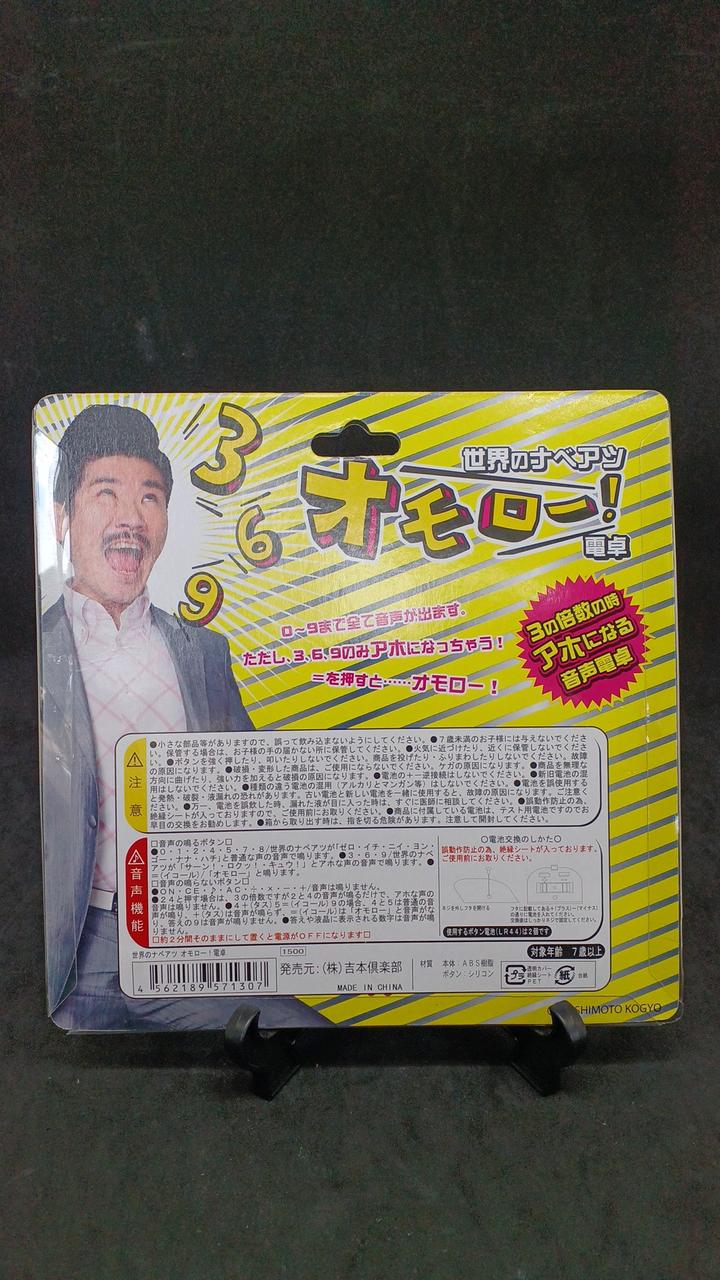 3
6
9
世界のナベアツ
オモロー!
電卓
0〜9まで全て音声が出ます。
ただし、3、6、9のみアホになっちゃう!
=を押すと……オモロー!
3の倍数の時
アホになる
音声電卓
注意
●小さな部品等がありますので、誤って飲み込まないようにしてください。●7歳未満のお子様には与えないでくださ
い。保管する場合は、お子様の手の届かない所に保管してください。●火気に近づけたり、近くに保管しないでくださ
い。●ボタンを強く押したり、叩いたりしないでください。商品を投げたり・ふりまわしたりしないでください。故障
の原因になります。●破損・変形した商品は、ご使用にならないでください。ケガの原因になります。●商品を無理な
方向に曲げたり、強い力を加えると破損の原因になります。●電池の+－逆接続はしないでください。●新旧電池の混
用はしないでください。●種類の違う電池の混用(アルカリとマンガン等)はしないでください。●電池を誤使用する
と発熱・破裂・液漏れの恐れがあります。古い電池と新しい電池を一緒に使用すると、故障の原因になります。ご注意く
ださい。●万一、電池を誤飲した時、漏れた液が目に入った時は、すぐに医師に相談してください。●誤動作防止の為、
絶縁シートが入っておりますので、ご使用前にお取りください。●商品に付属している電池は、テスト用電池ですのでお
早目の交換をお勧めします。●箱から取り出す時は、指を切る危険があります。注意して開封してください。
音声機能
□音声の鳴るボタン□
●0・1・2・4・5・7・8/世界のナベアツが「ゼロ・イチ・ニイ・ヨン・
ゴー・ナナ・ハチ」と普通な声の音声で鳴ります。●3・6・9/世界のナベ
アツが「サーン!・ロクッ!・キュウ!」とアホな声の音声で鳴ります。●
=(イコール)/「オモロー」と鳴ります。
□音声の鳴らないボタン□
●ON・CE・♪・AC・÷・×・－・+/音声は鳴りません。
●24と押す場合は、3の倍数ですが2と4の音声が鳴るだけで、アホな声の
音声は鳴りません。●4+(タス)5=(イコール)9の場合、4と5は普通の音
声が鳴り、+(タス)は音声が鳴らず、=(イコール)は「オモロー」と音声がな
り、答えの9は音声が鳴りません。●答えや液晶に表示される数字は音声が鳴
りません。
□約2分間そのままにして置くと電源がOFFになります□
〇電池交換のしかた〇
誤動作防止の為、絶縁シートが入っております。
ご使用前にお取りください。
ネジを外しフタを開ける
フタに記載してある+(プラス)－(マイナス)
の通りに電池を入れてください。
交換後はしっかりネジで固定してください。
使用するボタン電池(LR44)は2個です
世界のナベアツ オモロー!電卓
1500
4 562189 571307
発売元:(株)吉本倶楽部
MADE IN CHINA
材質
本体:ABS樹脂
ボタン:シリコン
対象年齢 7歳以上
プラ
透明カバー
絶縁シート
PET
紙
台紙
SHIMOTO KOGYO